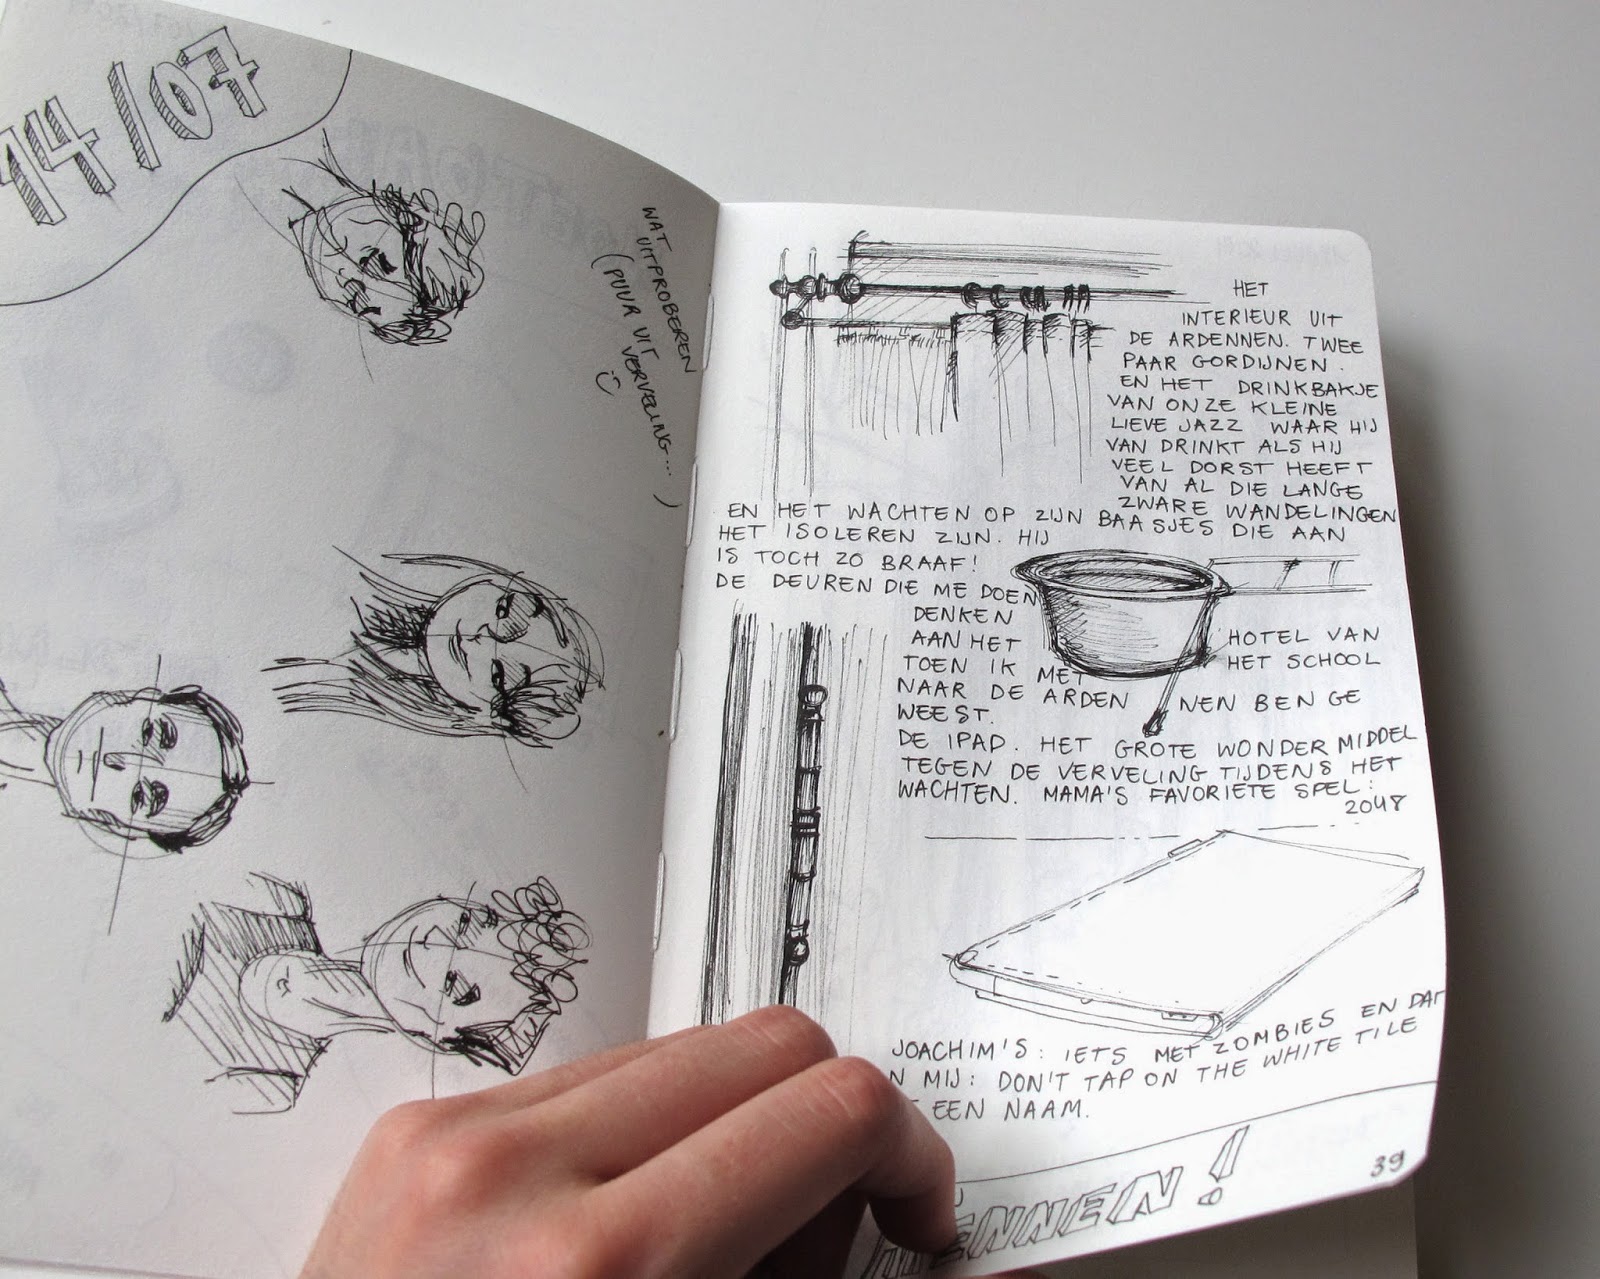 14/07
WAT
UITPROBEREN
(PUUR UIT
VERVELING...)
HET
INTERIEUR UIT
DE ARDENNEN. TWEE
PAAR GORDIJNEN.
EN HET DRINKBAKJE
VAN ONZE KLEINE
LIEVE JAZZ WAAR HIJ
VAN DRINKT ALS HIJ
VEEL DORST HEEFT
VAN AL DIE LANGE
ZWARE WANDELINGEN
EN HET WACHTEN OP ZIJN BAASJES DIE AAN
HET ISOLEREN ZIJN. HIJ
IS TOCH ZO BRAAF!
DE DEUREN DIE ME DOEN
DENKEN
AAN HET HOTEL VAN
TOEN IK MET HET SCHOOL
NAAR DE ARDEN NEN BEN GE
WEEST.
DE IPAD. HET GROTE WONDERMIDDEL
TEGEN DE VERVELING TIJDENS HET
WACHTEN. MAMA'S FAVORIETE SPEL:
2048
JOACHIM'S: IETS MET ZOMBIES EN DAT
N MIJ: DON'T TAP ON THE WHITE TILE
EEN NAAM.
ENNEN!
39